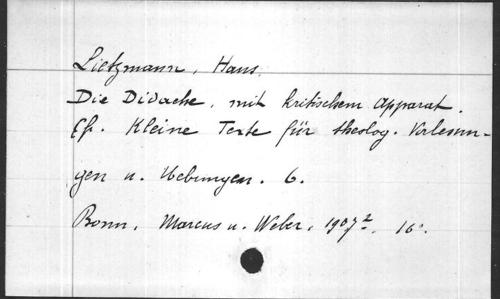 Lietzmann, Hans.
Die Didache, mit kritischem Apparat.
Cf. Kleine Texte für theolog. Vorlesun-
gen u. Uebungen. 6.
Bonn, Marcus u. Weber, 1907². 16°.